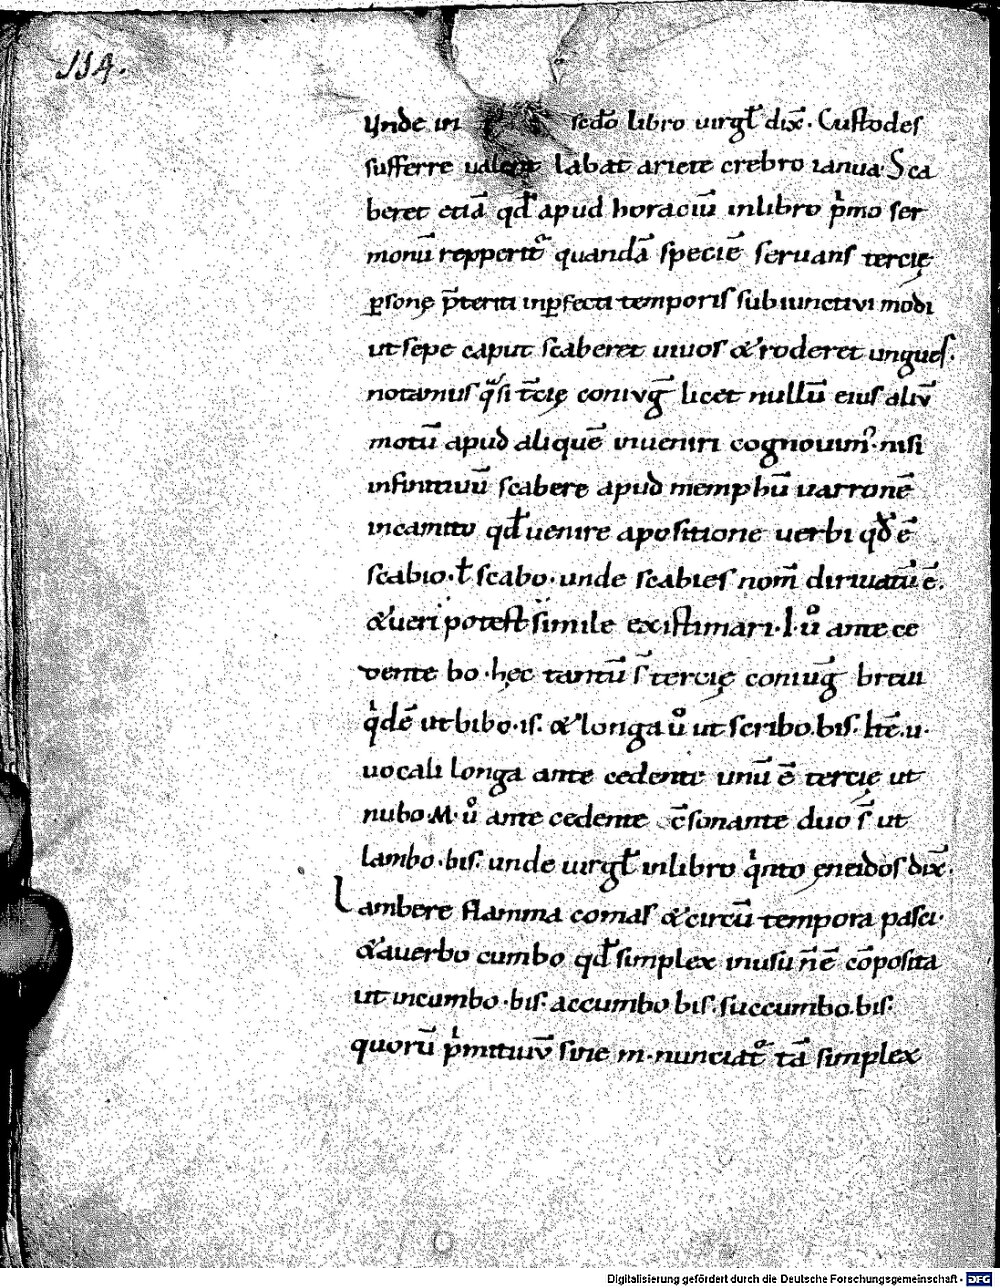 114.
Unde in sc̅do libro uirgł dix̅. Custodes
sufferre ualent labat ariete crebro ianua. Sca
beret etiā qđ apud horaciū inlibro p̍mo ser
monū repperit᷑ quandā speciē seruans tercię
ꝑsonę p̅teriti inꝑfecti temporis subiunctivi modi
ut sepe caput scaberet uiuos & roderet ungues.
notamus q̈si t̅cię coniug̅ licet nullū eius aliū
motū apud aliquē inueniri cognouim᾽. nisi
infinitiuū scabere apud memphū uarronē
incamito qđ uenire apositione uerbi qđ ē
scabio. ł scabo. unde scabies nom̅ diriuatū ē.
& ueri potest simile existimari. I. uͦ ante ce
dente bo. hęc tantū s̅ tercię coniug̅ breui
q̍dē ut bibo. is. & longa uͦ ut scribo. bis. ht̅e. u.
uocali longa ante cedente unū ē tercię ut
nubo. M. uͦ ante cedente c̅sonante duo s̅ ut
lambo. bis. unde uirgł inlibro q̍nto eneidos dix̅.
Lambere flamma comas & circū tempora pasci.
& auerbo cumbo qđ simplex inusu n̅ ē cōposita
ut incumbo. bis. accumbo bis. succumbo. bis.
quorū p̍mitiuū sine m. nunciat᷑ tā simplex
Digitalisierung gefördert durch die Deutsche Forschungsgemeinschaft - DFG